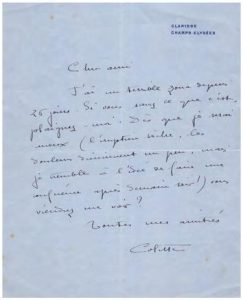 CLARIDGE
CHAMPS-ELYSÉES
Cher ami
J'ai un terrible zona depuis
25 jours. Si vous savez ce que c'est,
plaignez-moi. Dès que je serai
mieux (l'éruption sèche, les
douleurs diminuent un peu, mais
je tremble à l'idée de faire une
après demain soir!) vous
viendrez me voir?
Toutes mes amitiés
Colette